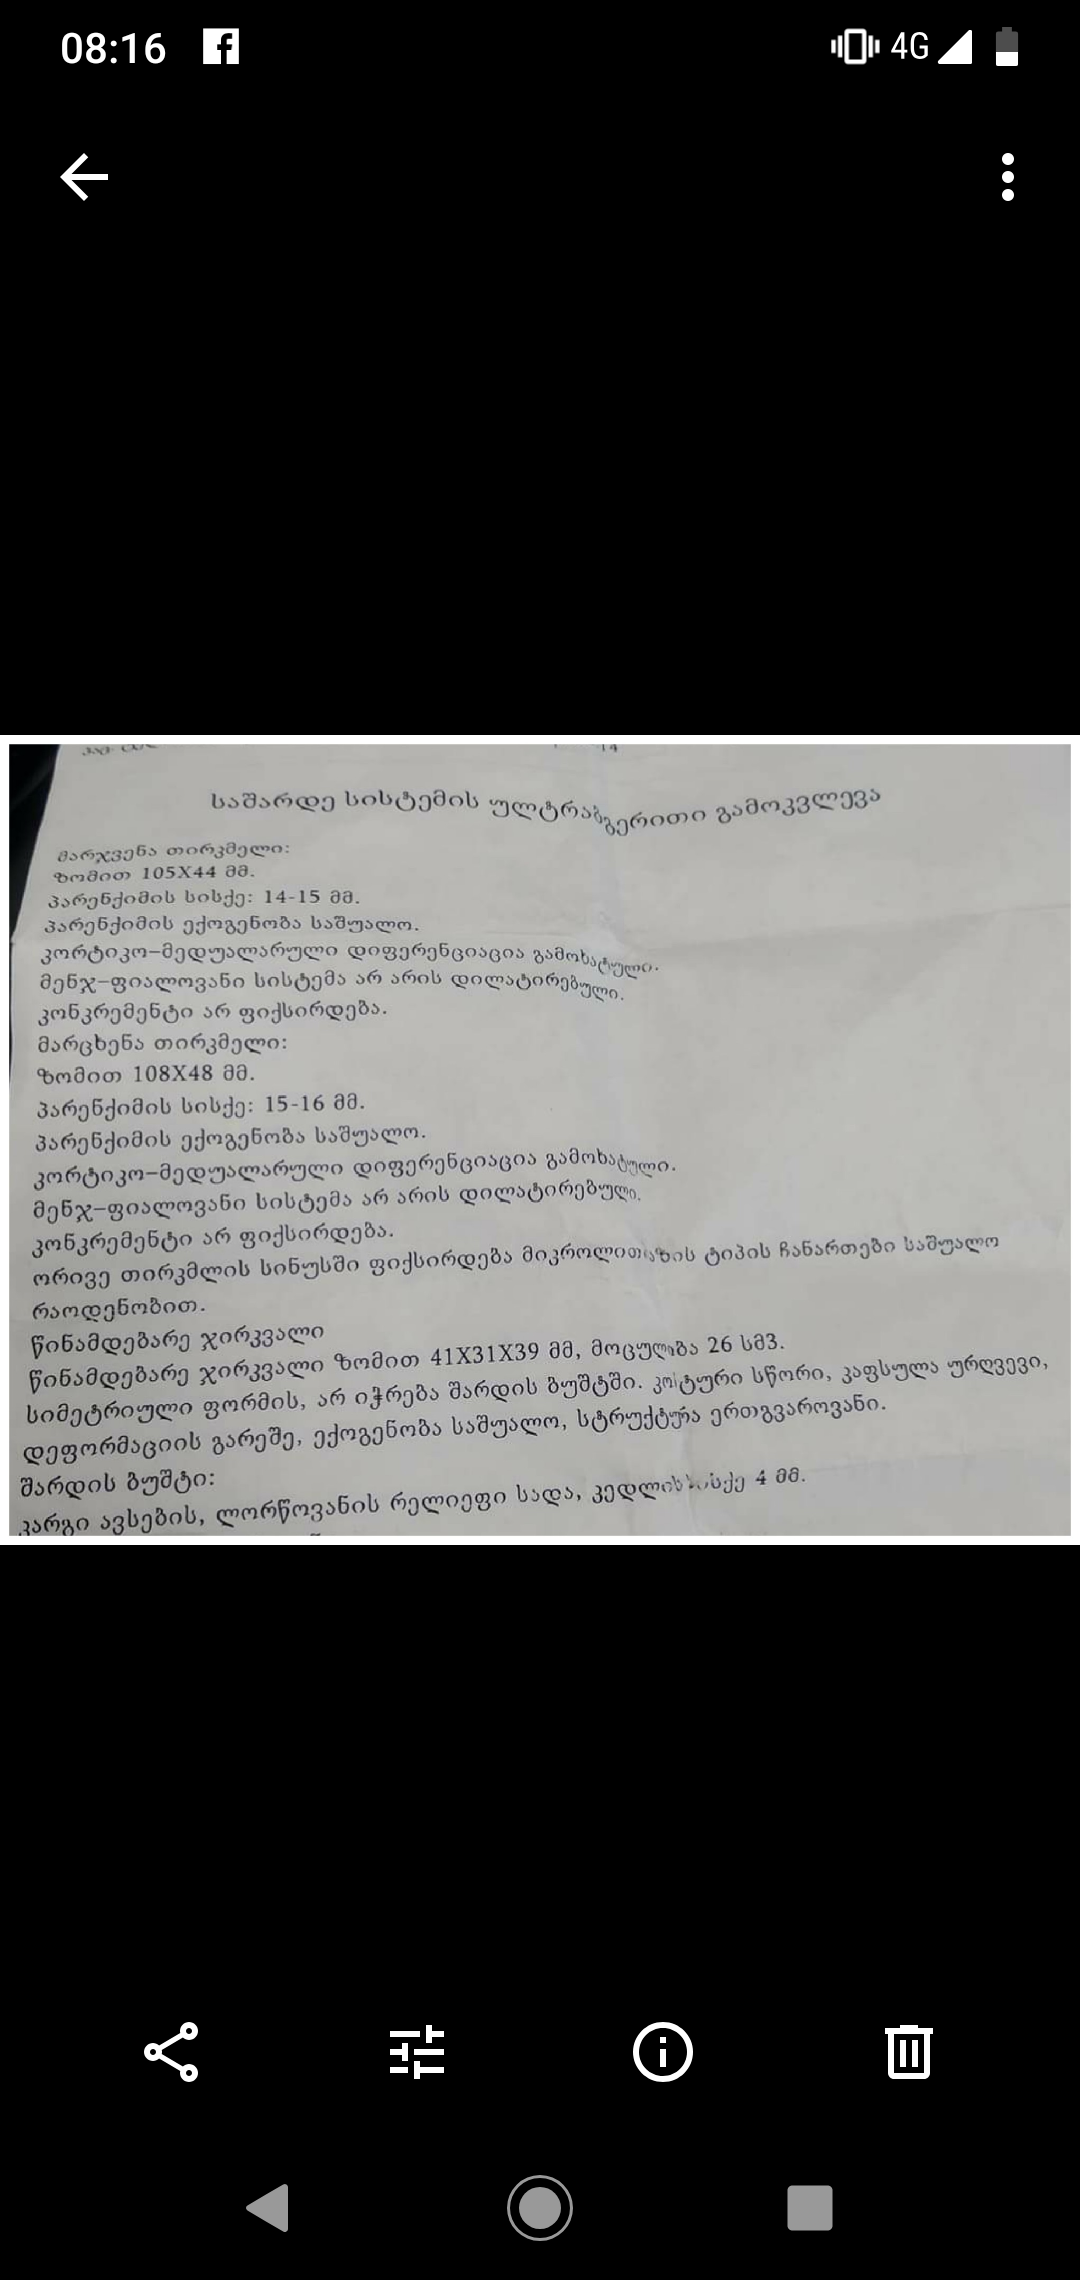 08:16
4G
საშარდე სისტემის ულტრაბგერითი გამოკვლევა
მარჯვენა თირკმელი:
ზომით 105X44 მმ.
პარენქიმის სისქე: 14-15 მმ.
პარენქიმის ექოგენობა საშუალო.
კორტიკო-მედუალარული დიფერენციაცია გამოხატული.
მენჯ-ფიალოვანი სისტემა არ არის დილატირებული.
კონკრემენტი არ ფიქსირდება.
მარცხენა თირკმელი:
ზომით 108X48 მმ.
პარენქიმის სისქე: 15-16 მმ.
პარენქიმის ექოგენობა საშუალო.
კორტიკო-მედუალარული დიფერენციაცია გამოხატული.
მენჯ-ფიალოვანი სისტემა არ არის დილატირებული.
კონკრემენტი არ ფიქსირდება.
ორივე თირკმლის სინუსში ფიქსირდება მიკროლითიაზის ტიპის ჩანართები საშუალო
რაოდენობით.
წინამდებარე ჯირკვალი
წინამდებარე ჯირკვალი ზომით 41X31X39 მმ, მოცულობა 26 სმ3.
სიმეტრიული ფორმის, არ იჭრება შარდის ბუშტში. კონტური სწორი, კაფსულა ურღვევი,
დეფორმაციის გარეშე, ექოგენობა საშუალო, სტრუქტურა ერთგვაროვანი.
შარდის ბუშტი:
კარგი ავსების, ლორწოვანის რელიეფი სადა, კედლის სისქე 4 მმ.